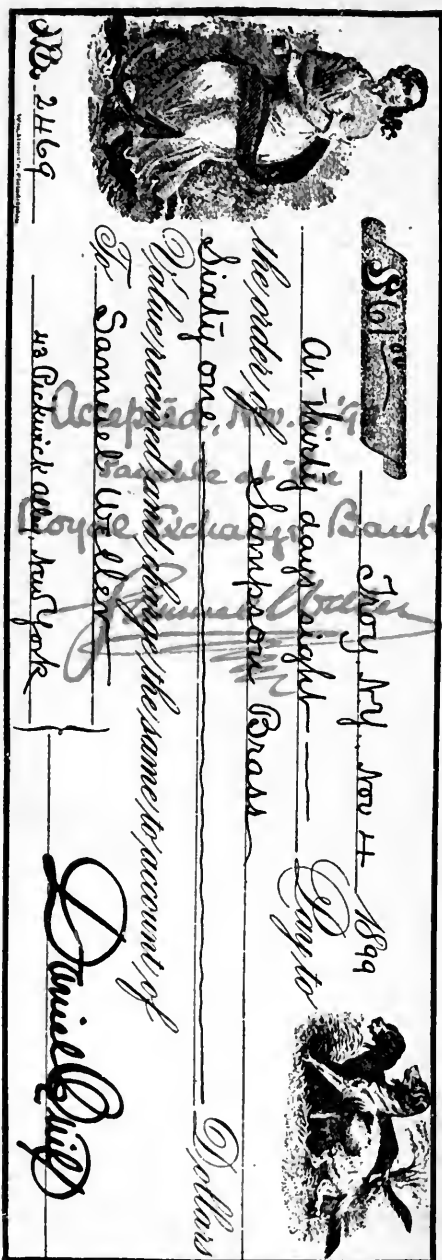 $61.00
Troy N.Y. Nov 4 1899
At Thirty days sight Pay to
the order of Sampson Brass
Sixty one Dollars
Value received and charge the same to account of
To Samuel Weller
43 Pickwick alley, New York
Daniel Quilp
No. 2469
Accepted, Nov.
Payable at the
Royal Exchange Bank
Samuel Weller